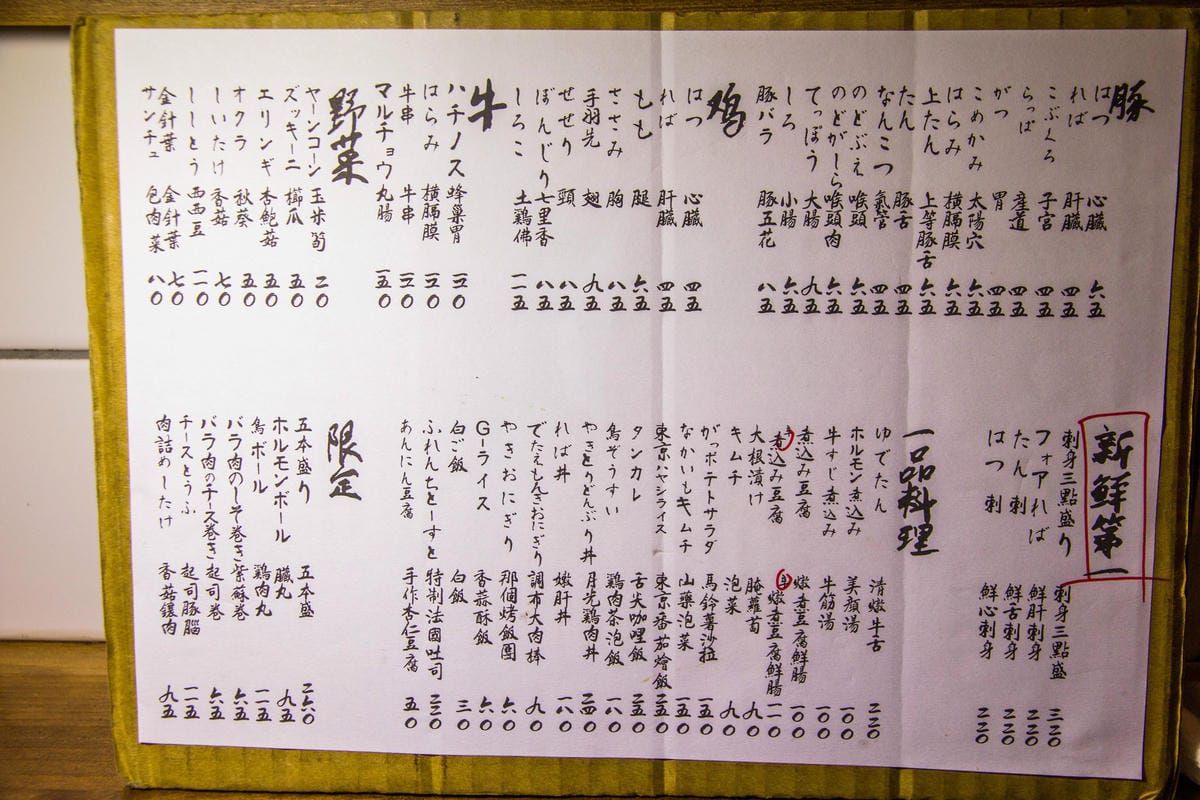 豚
はつ 心臓 六五
れば 肝臓 四五
こぶくろ 子宮 四五
らっぱ 産道 四五
がつ 胃 四五
こめかみ 太陽穴 六五
はらみ 横膈膜 六五
上たん 上等豚舌 六五
たん 豚舌 四五
なんこつ 氣管 四五
のどぶえ 喉頭 六五
のどがしら 喉頭肉 六五
てっぽう 大腸 九五
しろ 小腸 六五
豚バラ 豚五花 八五
鸡
はつ 心臓 四五
れば 肝臓 四五
もも 腿 六五
ささみ 胸 八五
手羽先 翅 九五
せせり 頸 八五
ぼんじり 七里香 八五
しろこ 土鶏佛 一一五
牛
ハチノス 蜂巢胃 一三〇
はらみ 横膈膜 一三〇
牛串 牛串 一三〇
マルチョウ 丸腸 一五〇
野菜
ヤーンコーン 玉米筍 二〇
ズッキーニ 櫛瓜 五〇
エリンギ 杏鮑菇 五〇
オクラ 秋葵 五〇
しいたけ 香菇 七〇
ししとう 西西豆 一一〇
金針葉 金針葉 七〇
サンチュ 包肉菜 八〇
新鮮第一
刺身三點盛り 刺身三點盛 三二〇
フォアれば 鮮肝刺身 二二〇
たん刺 鮮舌刺身 二二〇
はつ刺 鮮心刺身 二二〇
一品料理
ゆでたん 清燉牛舌 二二〇
ホルモン煮込み 美顔湯 一〇〇
牛すじ煮込み 牛筋湯 一〇〇
煮込み豆腐 燉煮豆腐鮮腸 一〇〇
煮込み豆腐 燉煮豆腐鮮腸 一一〇
大根漬け 腌蘿蔔 九〇
キムチ 泡菜 九〇
がっポテトサラダ 馬鈴薯沙拉 一五〇
なかいもキムチ 山藥泡菜 一五〇
東京ハヤシライス 東京番茄燴飯 二五〇
タンカレ 舌尖咖哩飯 二五〇
鳥ぞうすい 鶏肉茶泡飯 一八〇
やきとりどんぶり丼 月光鶏肉丼 二四〇
れば丼 嫩肝丼 一八〇
でたえもんきおにぎり 調布大肉棒 九〇
やきおにぎり 那個烤飯團 六〇
Gーライス 香蒜酥飯 六〇
白ご飯 白飯 三〇
ふれんちとーすと 特制法國吐司 二三〇
あんにん豆腐 手作杏仁豆腐 五〇
限定
五本盛り 五本盛 二六〇
ホルモンボール 臓丸 九五
鳥ボール 鶏肉丸 一一五
バラ肉のしそ巻き 紫蘇巻 六五
バラ肉のチース巻き 起司巻 六五
チースとうふ 起司豚腦 一一五
肉詰めしたけ 香菇鑲肉 九五